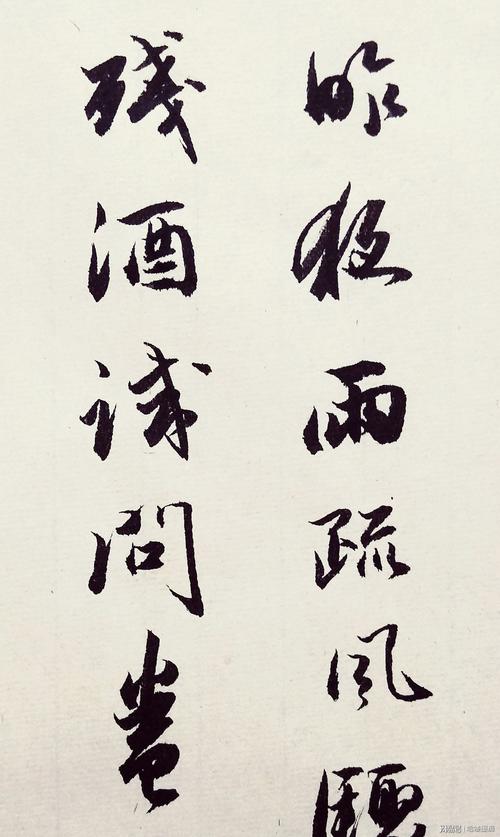 昨夜雨疏風驟
殘酒試問卷